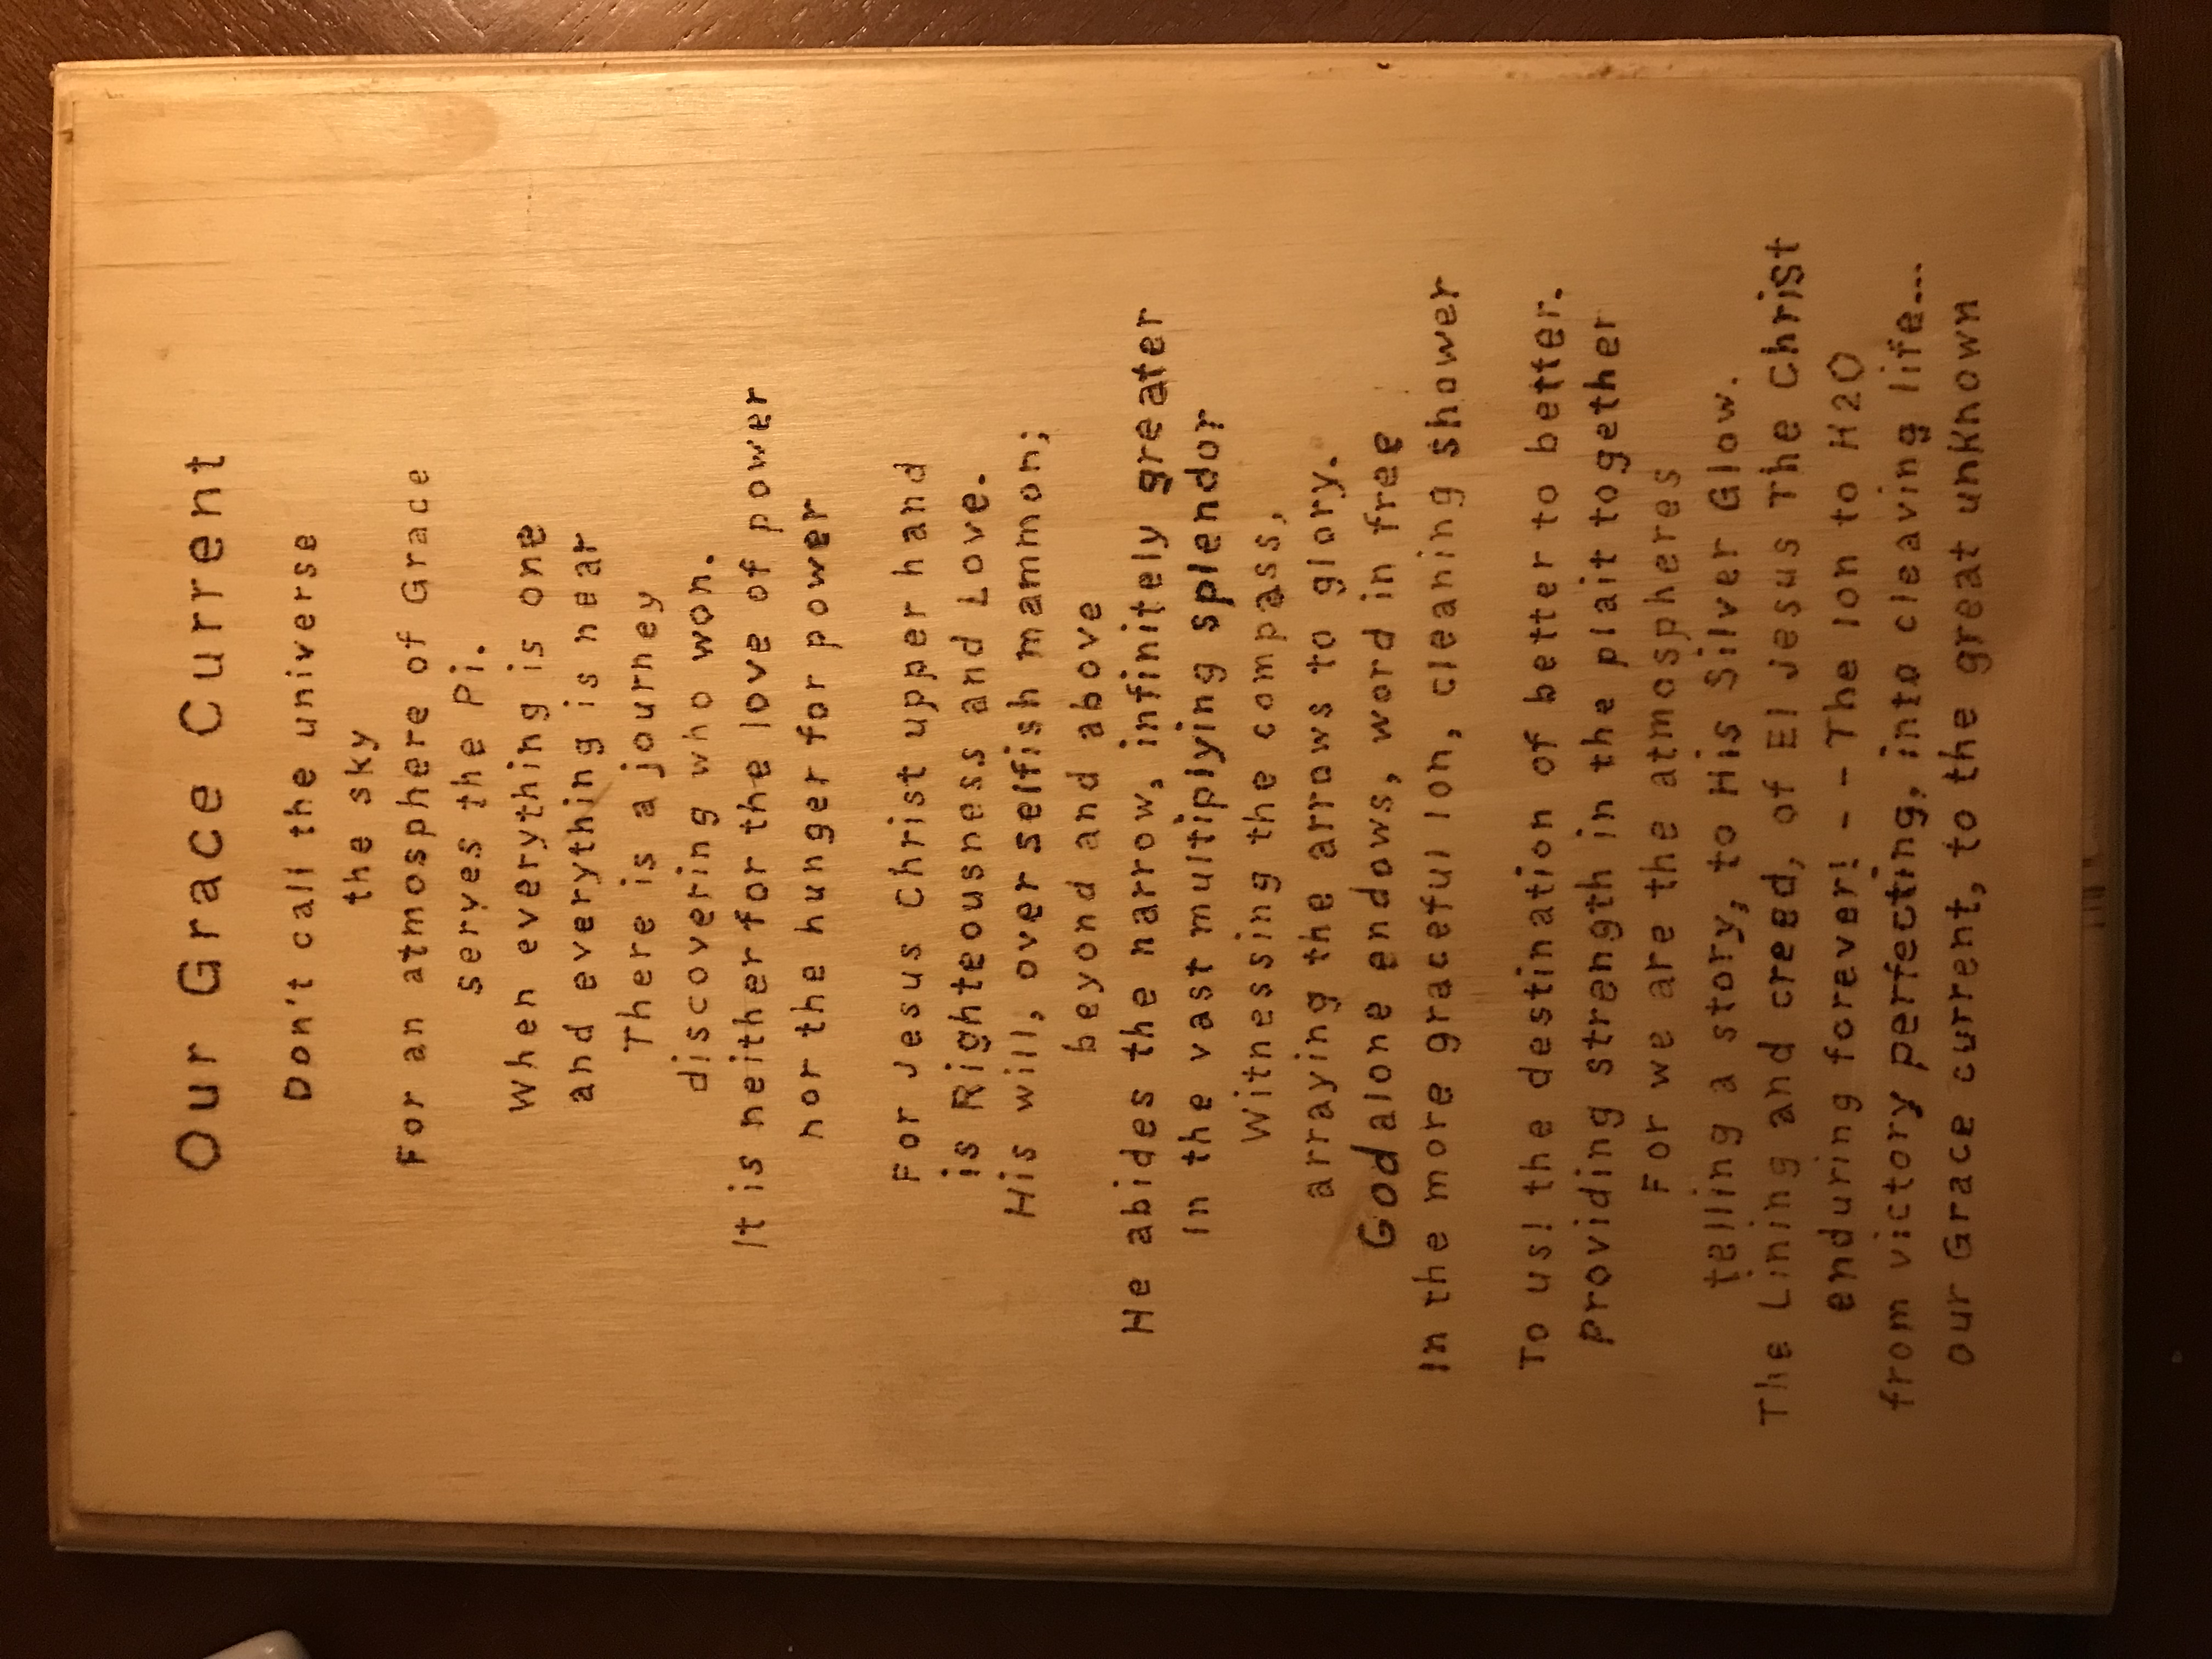 Our Grace Current
Don't call the universe
the sky
For an atmosphere of Grace
serves the Pi.
When everything is one
and everything is near
There is a journey
discovering who won.
It is neither for the love of power
nor the hunger for power
For Jesus Christ upper hand
is Righteousness and Love.
His will, over selfish mammon;
beyond and above
He abides the narrow, infinitely greater
In the vast multiplying splendor
Witnessing the compass,
arraying the arrows to glory.
God alone endows, word in free
In the more graceful Ion, cleaning shower
To us! the destination of better to better.
Providing strength in the plait together
For we are the atmospheres
telling a story, to His Silver Glow.
The Lining and creed, of El Jesus The Christ
enduring forever! -- The Ion to H2O
from victory perfecting, into cleaving life...
our Grace current, to the great unknown